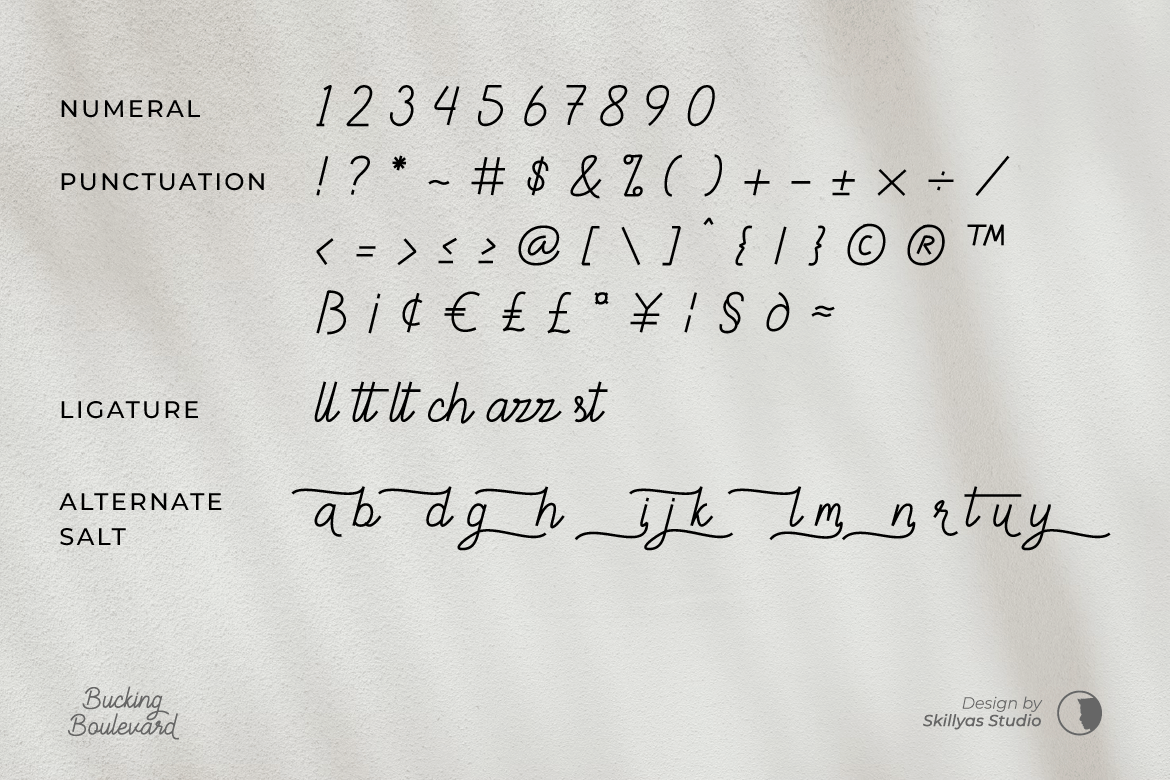 NUMERAL 1 2 3 4 5 6 7 8 9 0
PUNCTUATION ! ? * ~ # $ & % ( ) + − ± × ÷ /
< = > ≤ ≥ @ [ \ ] ^ { | } © ® ™
ß i ¢ € ₤ £ ¤ ¥ ¦ § ∂ ≈
LIGATURE ll tt lt ch azz st
ALTERNATE
SALT a b d g h i j k l m n r t u y
Bucking
Boulevard
Design by
Skillyas Studio